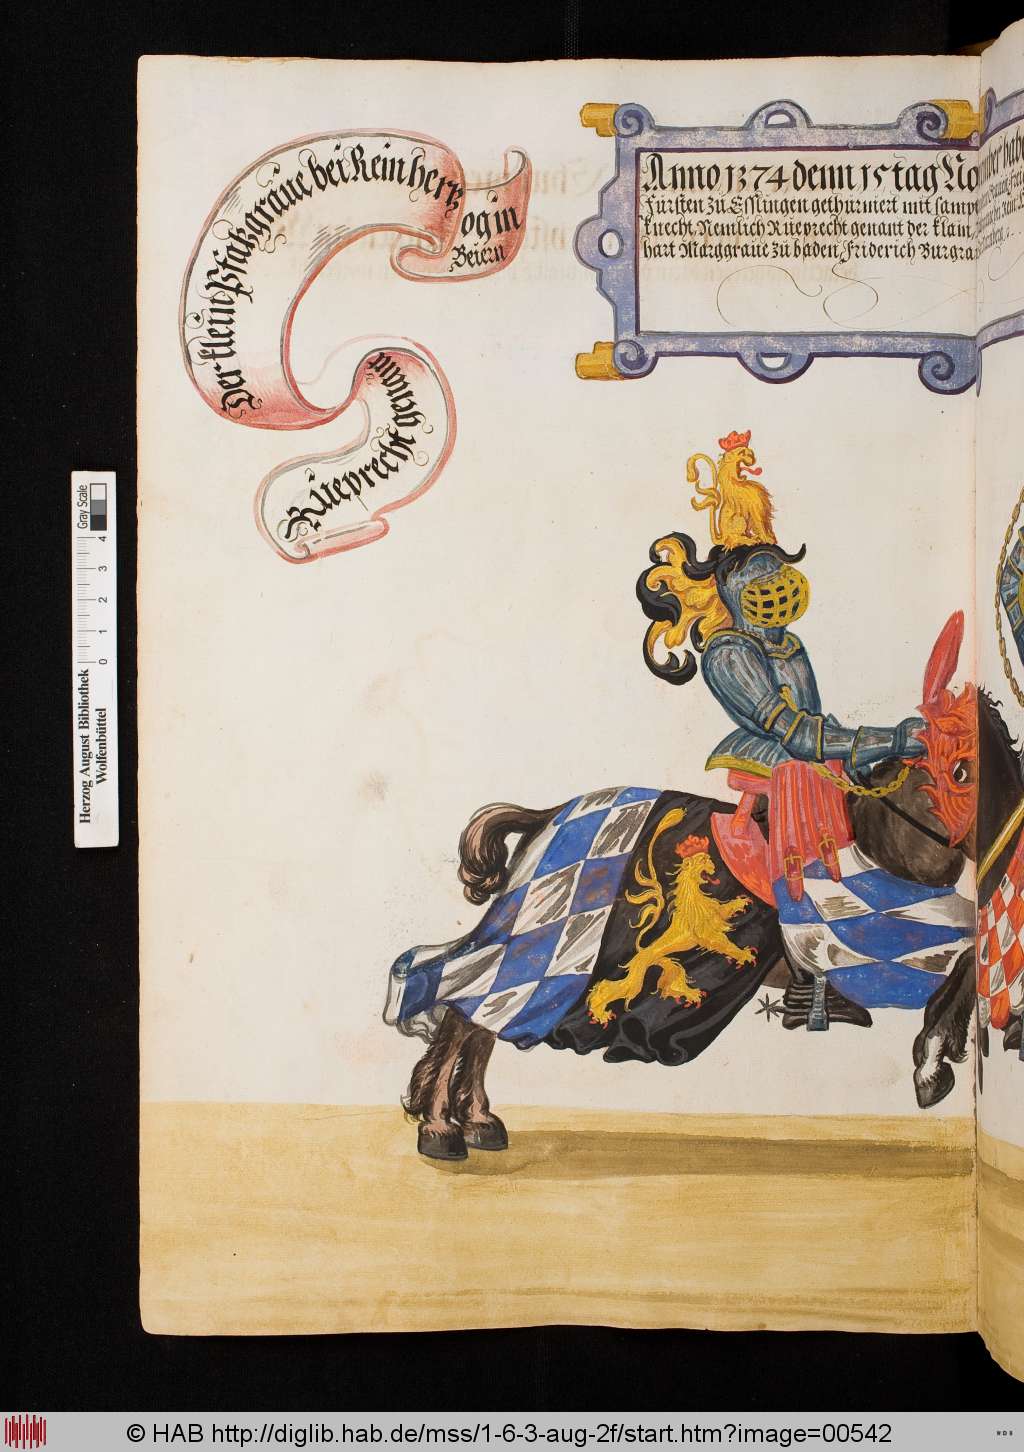 Rüeprecht genant
Der klein Pfaltzgraüe bei Rein hertz
og in
Beiern
Anno 1374 denn 15 tag No
Fürsten zu Esslingen gethürniert mit samp
knecht, Nemlich Rüeprecht genant der klain
hart Marggraue zu baden, Friderich Burgra
Herzog August Bibliothek
Wolfenbüttel
0 1 2 3 4
Gray Scale
© HAB http://diglib.hab.de/mss/1-6-3-aug-2f/start.htm?image=00542